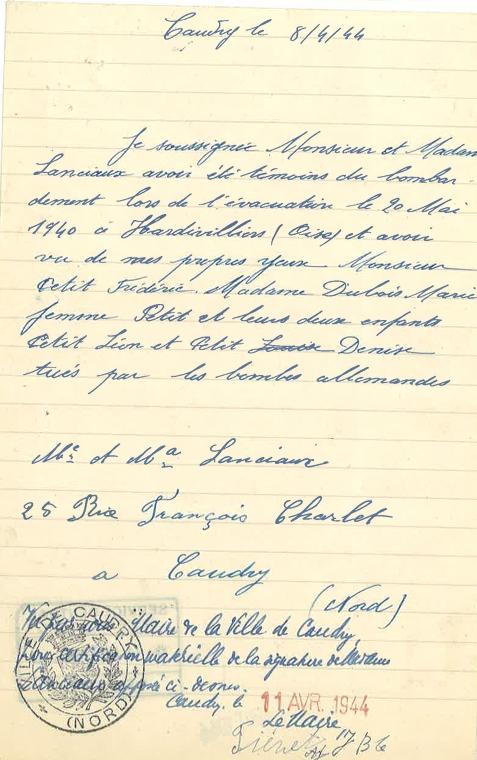 Caudry le 8/4/44
Je soussignée Monsieur et Madam
Lanciaux avoir été témoins du bombar-
dement lors de l'évacuation le 20 Mai
1940 à Hardivilliers (Oise) et avoir
vu de mes propres yeux Monsieur
Petit Frédéric. Madame Dubois Marie
femme Petit et leurs deux enfants
Petit Léon et Petit Louise Denise
tués par les bombes allemandes
Mr et Ma Lanciaux
25 Rue François Charlet
a Caudry
(Nord)
Maire de la Ville de Caudry,
pour certification matérielle de la signature de
Lanciaux apposé ci-dessus.
Caudry, le 11 AVR. 1944
Le Maire
VILLE DE CAUDRY
(NORD)